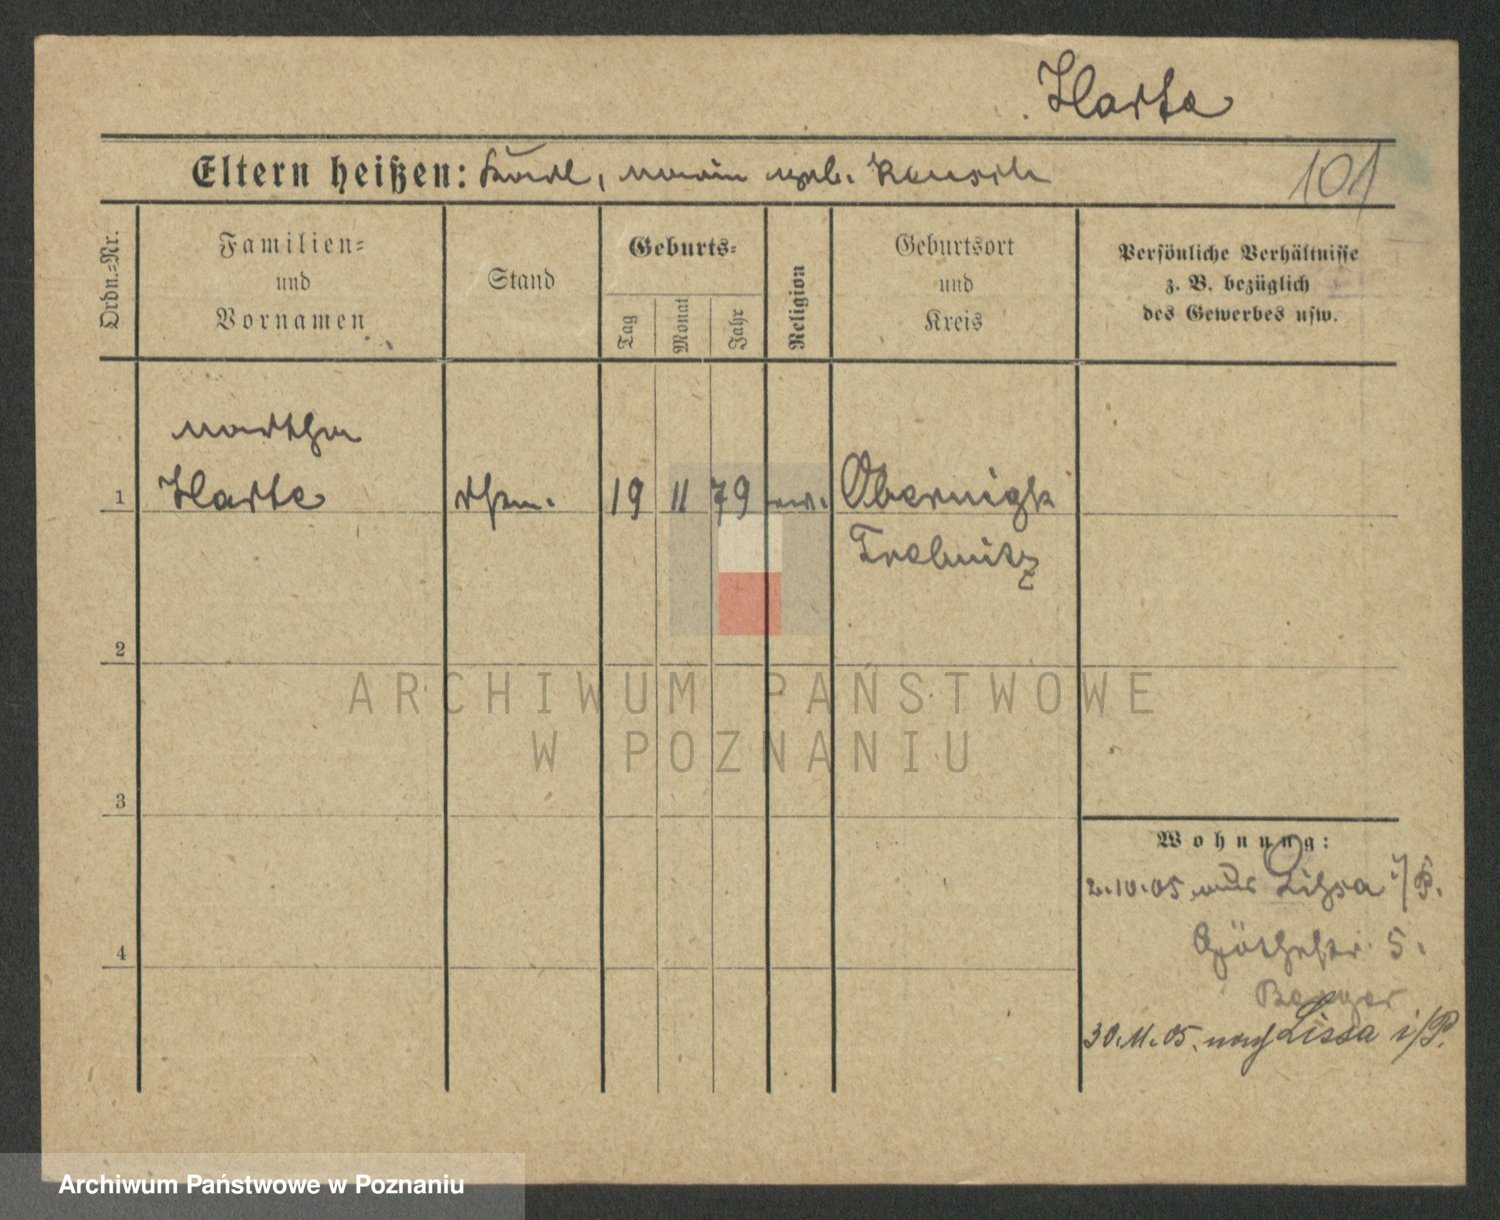 Harte
Eltern heißen: Karl, Marie geb. Rensch
101
Ordn.-Nr.
Familien-
und
Vornamen
Stand
Geburts-
Tag
Monat
Jahr
Religion
Geburtsort
und
Kreis
Persönliche Verhältnisse
z. B. bezüglich
des Gewerbes usw.
Martha
1 Harte 19 11 79 ev. Obernigk
Trebnitz
2
ARCHIWUM PAŃSTWOWE
W POZNANIU
3
Wohnung:
2.10.05 aus Lissa i/P.
Göthestr. 5.
Berger
4
30.11.05. nach Lissa i/P.
Archiwum Państwowe w Poznaniu